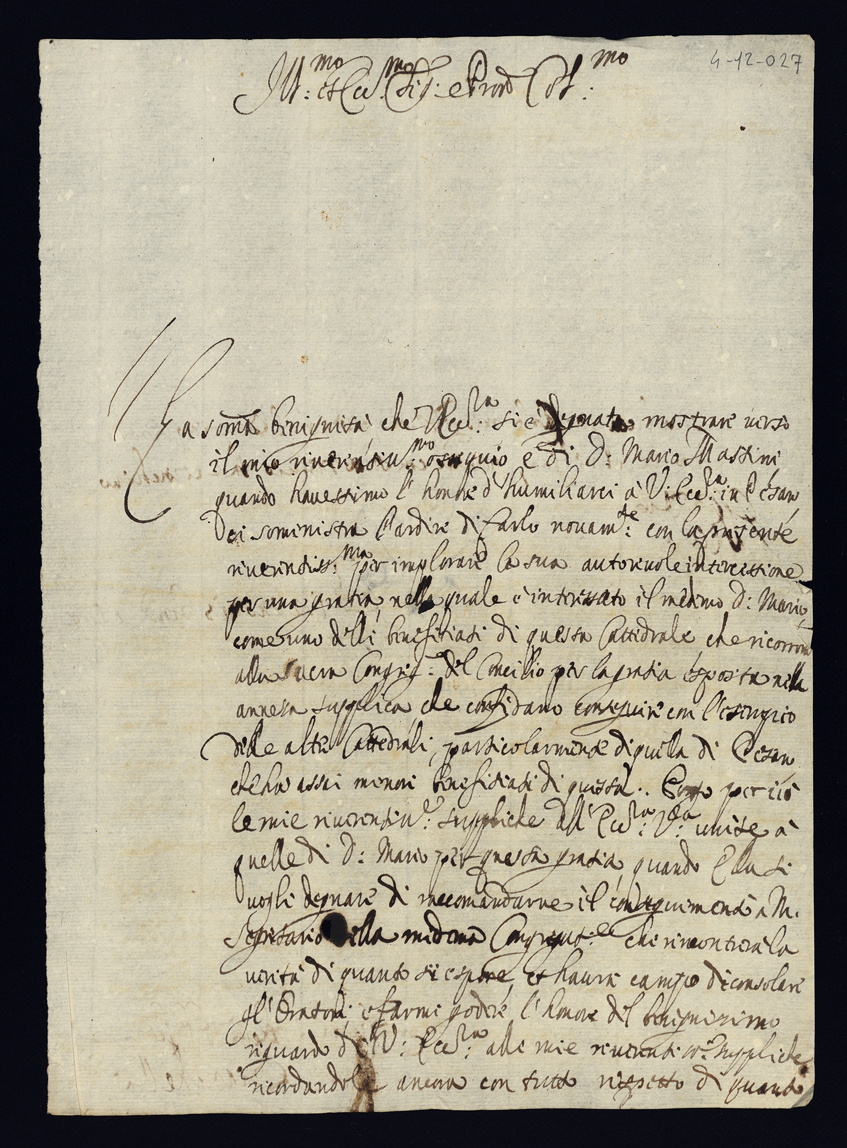 4-12-027
Ill:mo et Ecc:mo Sig:r e Pron Col:mo
La somã benignità che V: Ecc:za si è degnata mostrare verso
il mio riverentiss:mo ossequio e di D: Mario Mastini
quando havessimo l'honore d'humiliarci à V: Ecc:za in Pesaro
Dei soministra l'ardire di farlo novam:te con la presente
riverentiss:ma per implorare la sua autorevole intercessione
per una gratia, nella quale è interessato il medemo D: Mario,
come uno delli benefitiati di questa Cattedrale che ricorrono
alla Sacra Congreg:e del Concilio per la gratia esposta nella
annessa supplica che confidano conseguire con l'essempio
delle altre Cattedrali, particolarmente di quella di Pesaro
che hà assai menori benefitiati di questa. Porgo per ciò
le mie riverentiss:e suppliche all'Ecc:za V:ra unite à
quelle di D: Mario per questa gratia, quando Ella si
vogli degnare di raccomandarne il conseguimento à M.
Segretario della medema Congregat:e che rincontrerà la
verità di quanto si espone, et haurà campo di consolare
gl'Oratori, e farmi godere l'honore del benignissimo
riguardo di V: Ecc:za alle mie riverentiss:e suppliche
ricordandole ancora con tutto rispetto di quanto